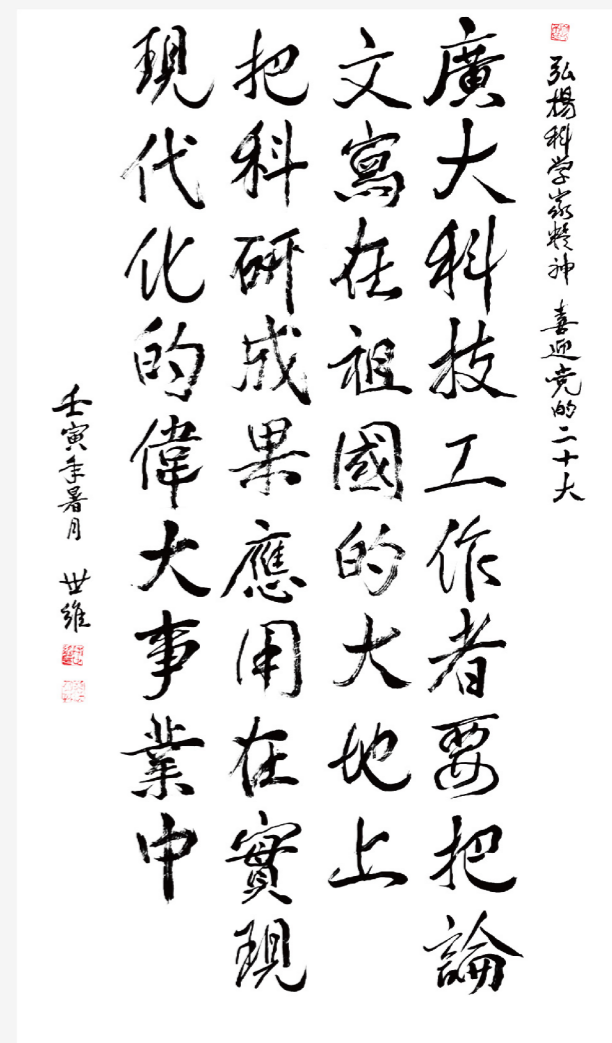 弘揚科学家精神 喜迎党的二十大
廣大科技工作者要把論
文寫在祖國的大地上
把科研成果應用在實現
現代化的偉大事業中
壬寅年暑月 世維